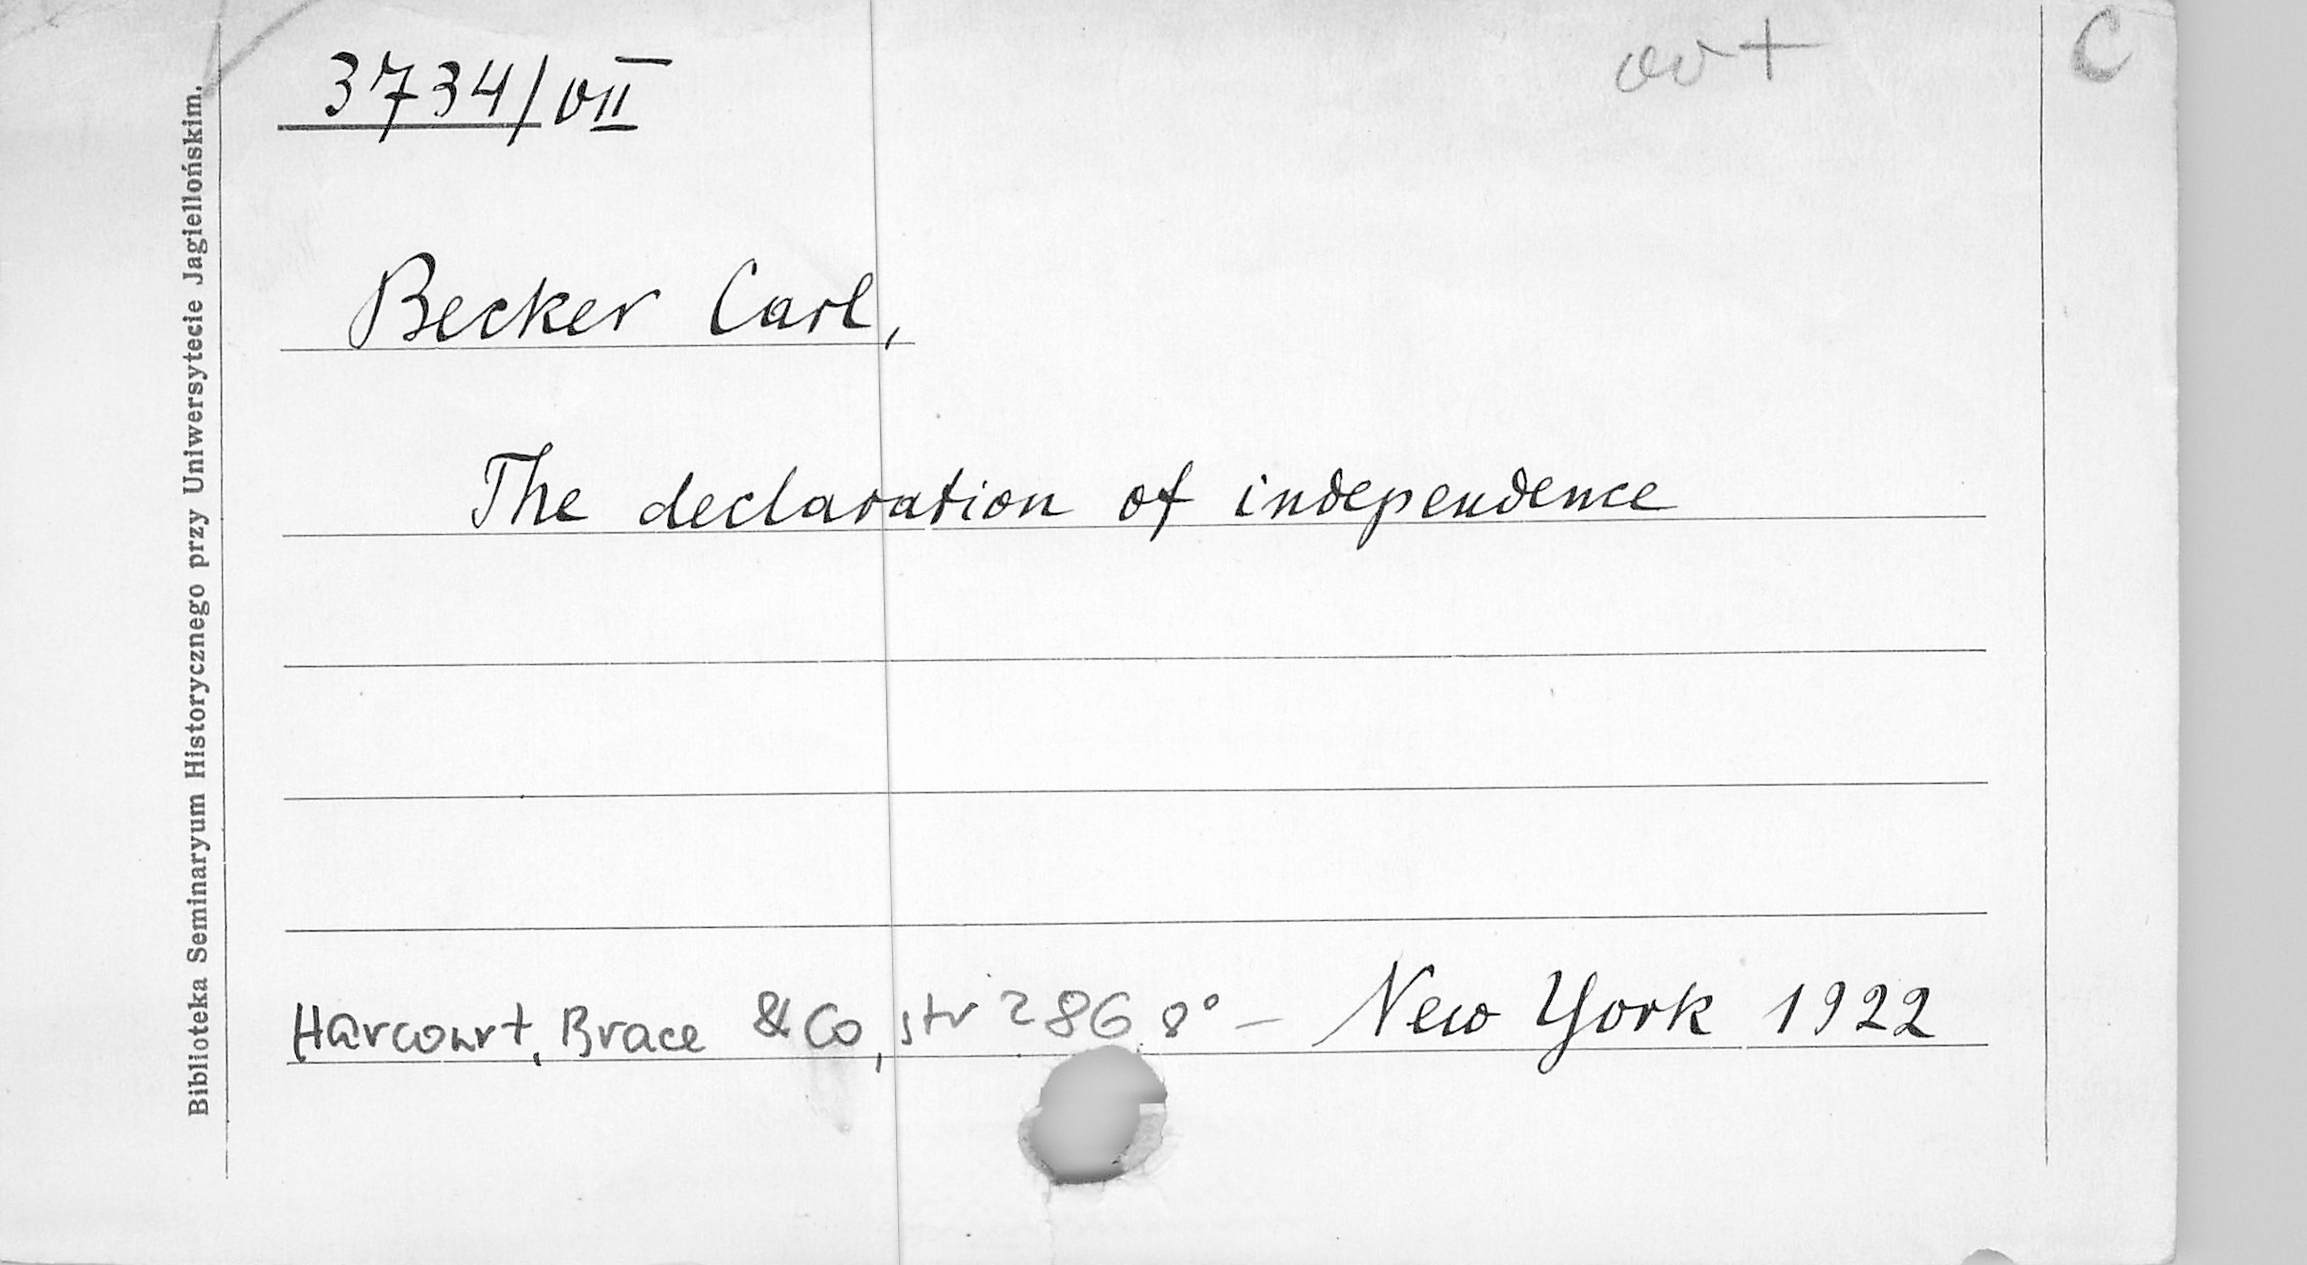 3734/VII
C
Becker Carl,
The declaration of independence
Harcourt, Brace & Co, str 286 8° — New York 1922
Biblioteka Seminaryum Historycznego przy Uniwersytecie Jagiellońskim.